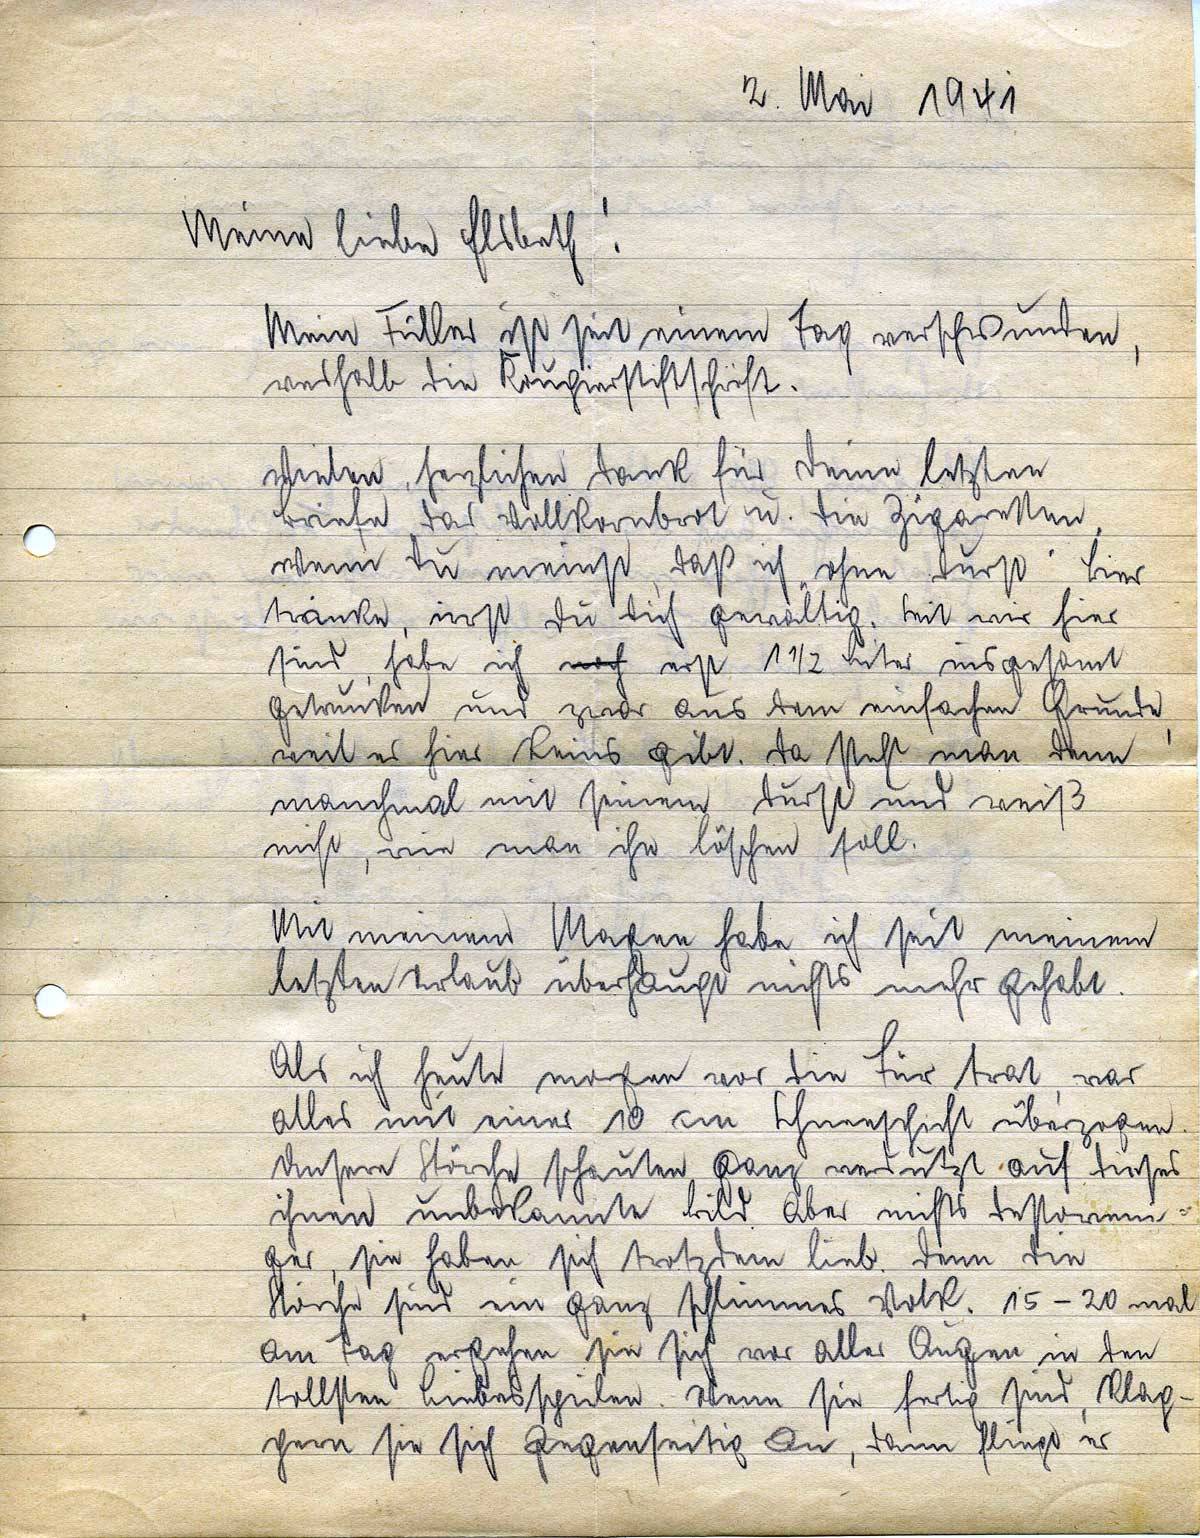 2. Mai 1941
Meine liebe Elsbeth!
Mein Füller ist seit einem Tag verschwunden,
weshalb die Kopierstiftschrift.
Vielen, herzlichen Dank für Deine letzten
Briefe, das Vollkornbrot u. die Zigaretten.
Wenn Du meinst, daß ich „ohne Durst" Bier
trinke, irrst Du Dich gewaltig. Seit wir hier
sind, habe ich noch erst 1 1/2 Liter insgesamt
getrunken und zwar aus dem einfachen Grunde,
weil es hier keins gibt. Da steht man denn
manchmal mit seinem Durst und weiß
nicht, wie man ihn löschen soll.
Mit meinem Magen habe ich seit meinem
letzten Urlaub überhaupt nichts mehr gehabt.
Als ich heute morgen vor die Tür trat, war
alles mit einer 10 cm Schneeschicht überzogen.
Unsere Störche schauten ganz verdutzt auf dieses
ihnen unbekannte Bild. Aber nichts destoweni=
ger, sie haben sich trotzdem lieb. Denn die
Störche sind ein ganz schlimmes Volk. 15 – 20 mal
am Tag ergehen sie sich vor aller Augen in den
tollsten Liebesspielen. Wenn sie fertig sind, klap-
pern sie sich gegenseitig an, dann fliegt er